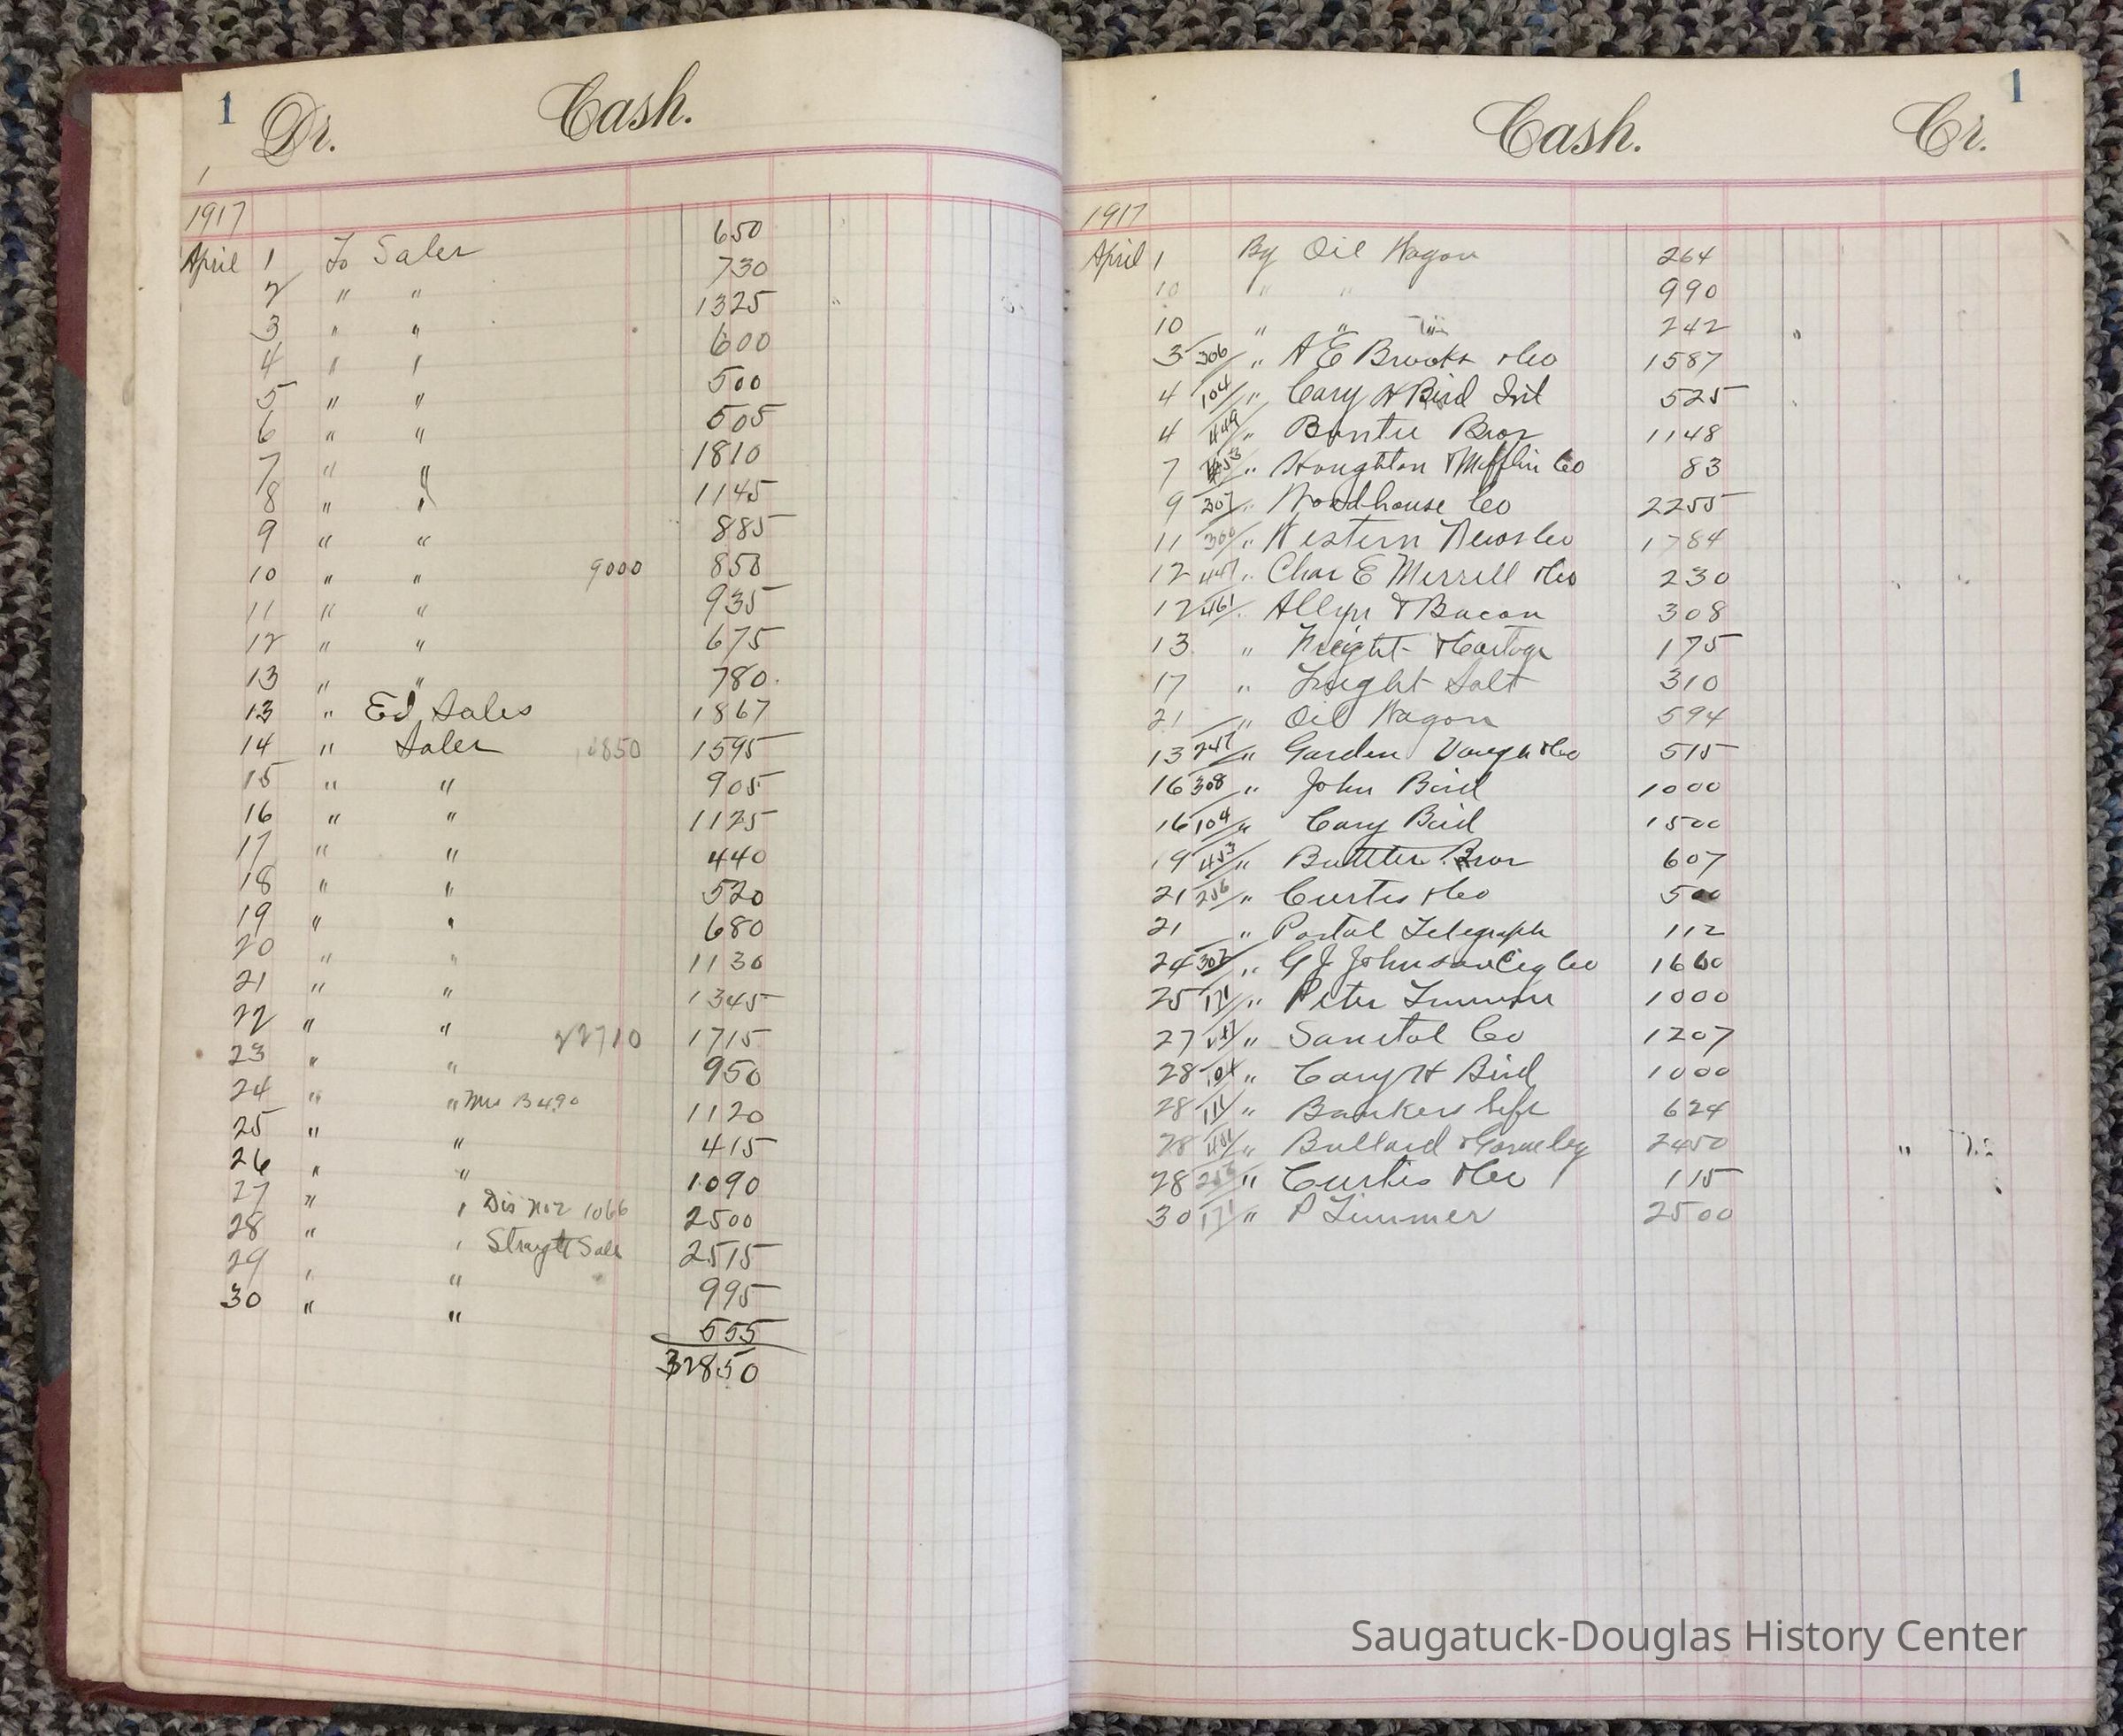 1 Dr. Cash.
1917
650
April 1 To Sales 730
2 " " 1325
3 " " 600
4 " " 500
5 " " 505
6 " " 1810
7 " " 1145
8 " " 885
9 " " 850
10 " " 9000 935
11 " " 675
12 " " 780
13 " "
13 " Ed Sales 1867
14 " Sales 850 1595
15 " " 905
16 " " 1125
17 " " 440
18 " " 520
19 " " 680
20 " " 1130
21 " " 1345
22 " " 22710 1715
23 " " 950
24 " " Mrs B 490 1120
25 " " 415
26 " " 1090
27 " " Dis No 2 1066 2500
28 " " Straight Sale 2515
29 " " 995
30 " " 555
32850
Cash. Cr. 1
1917
April 1 By Oil Wagon 264
10 " " 990
10 " " 242
3 306/ " A E Brooks & Co 1587
4 104/ " Cary H Bird Int 525
4 449/ " Buntie Bros 1148
7 " Houghton & Mifflin Co 83
9 307/ " Woodhouse Co 2255
11 300/ " Western News Co 1784
12 447/ " Chas E Merrill & Co 230
12 461/ " Allyn & Bacon 308
13 " Freight & Cartage 175
17 " Freight Salt 310
21 " Oil Wagon 594
13 247/ " Garden & Co 515
16 308/ " John Bird 1000
16 104/ " Cary Bird 1500
19 453/ " Buttler Bros 607
21 256/ " Curtis & Co 500
21 " Postal Telegraph 112
24 302/ " G J Johnson Cig Co 1660
25 171/ " Peter Timmer 1000
27 " Sanitol Co 1207
28 104/ " Cary H Bird 1000
28 111/ " Bankers Life 624
28 " Bullard & Gormley 2450
28 " Curtis & Co 115
30 171/ " P Timmer 2500
Saugatuck-Douglas History Center